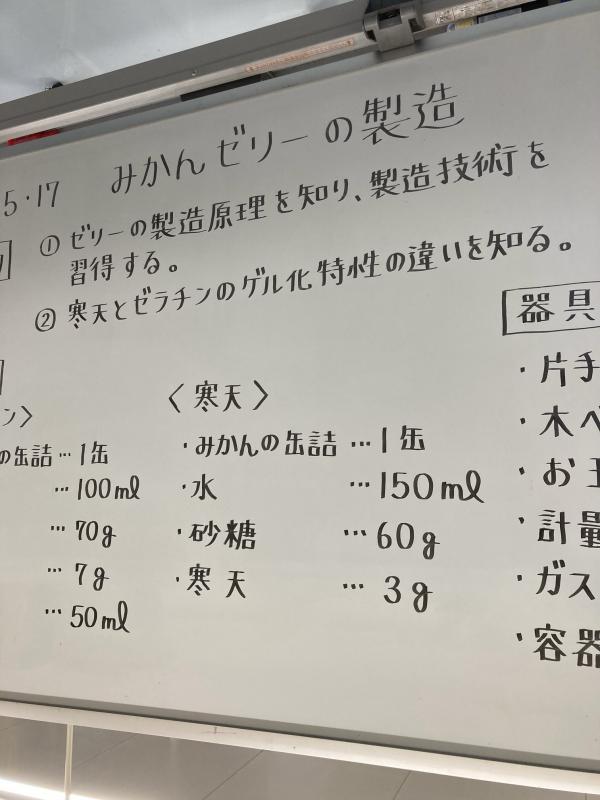 5・17 みかんゼリーの製造
① ゼリーの製造原理を知り、製造技術を
習得する。
② 寒天とゼラチンのゲル化特性の違いを知る。
ン〉
の缶詰…1缶
…100ml
…70g
…7g
…50ml
〈寒天〉
・みかんの缶詰…1缶
・水…150ml
・砂糖…60g
・寒天…3g
器具
・片手
・木べ
・お玉
・計量
・ガス
・容器